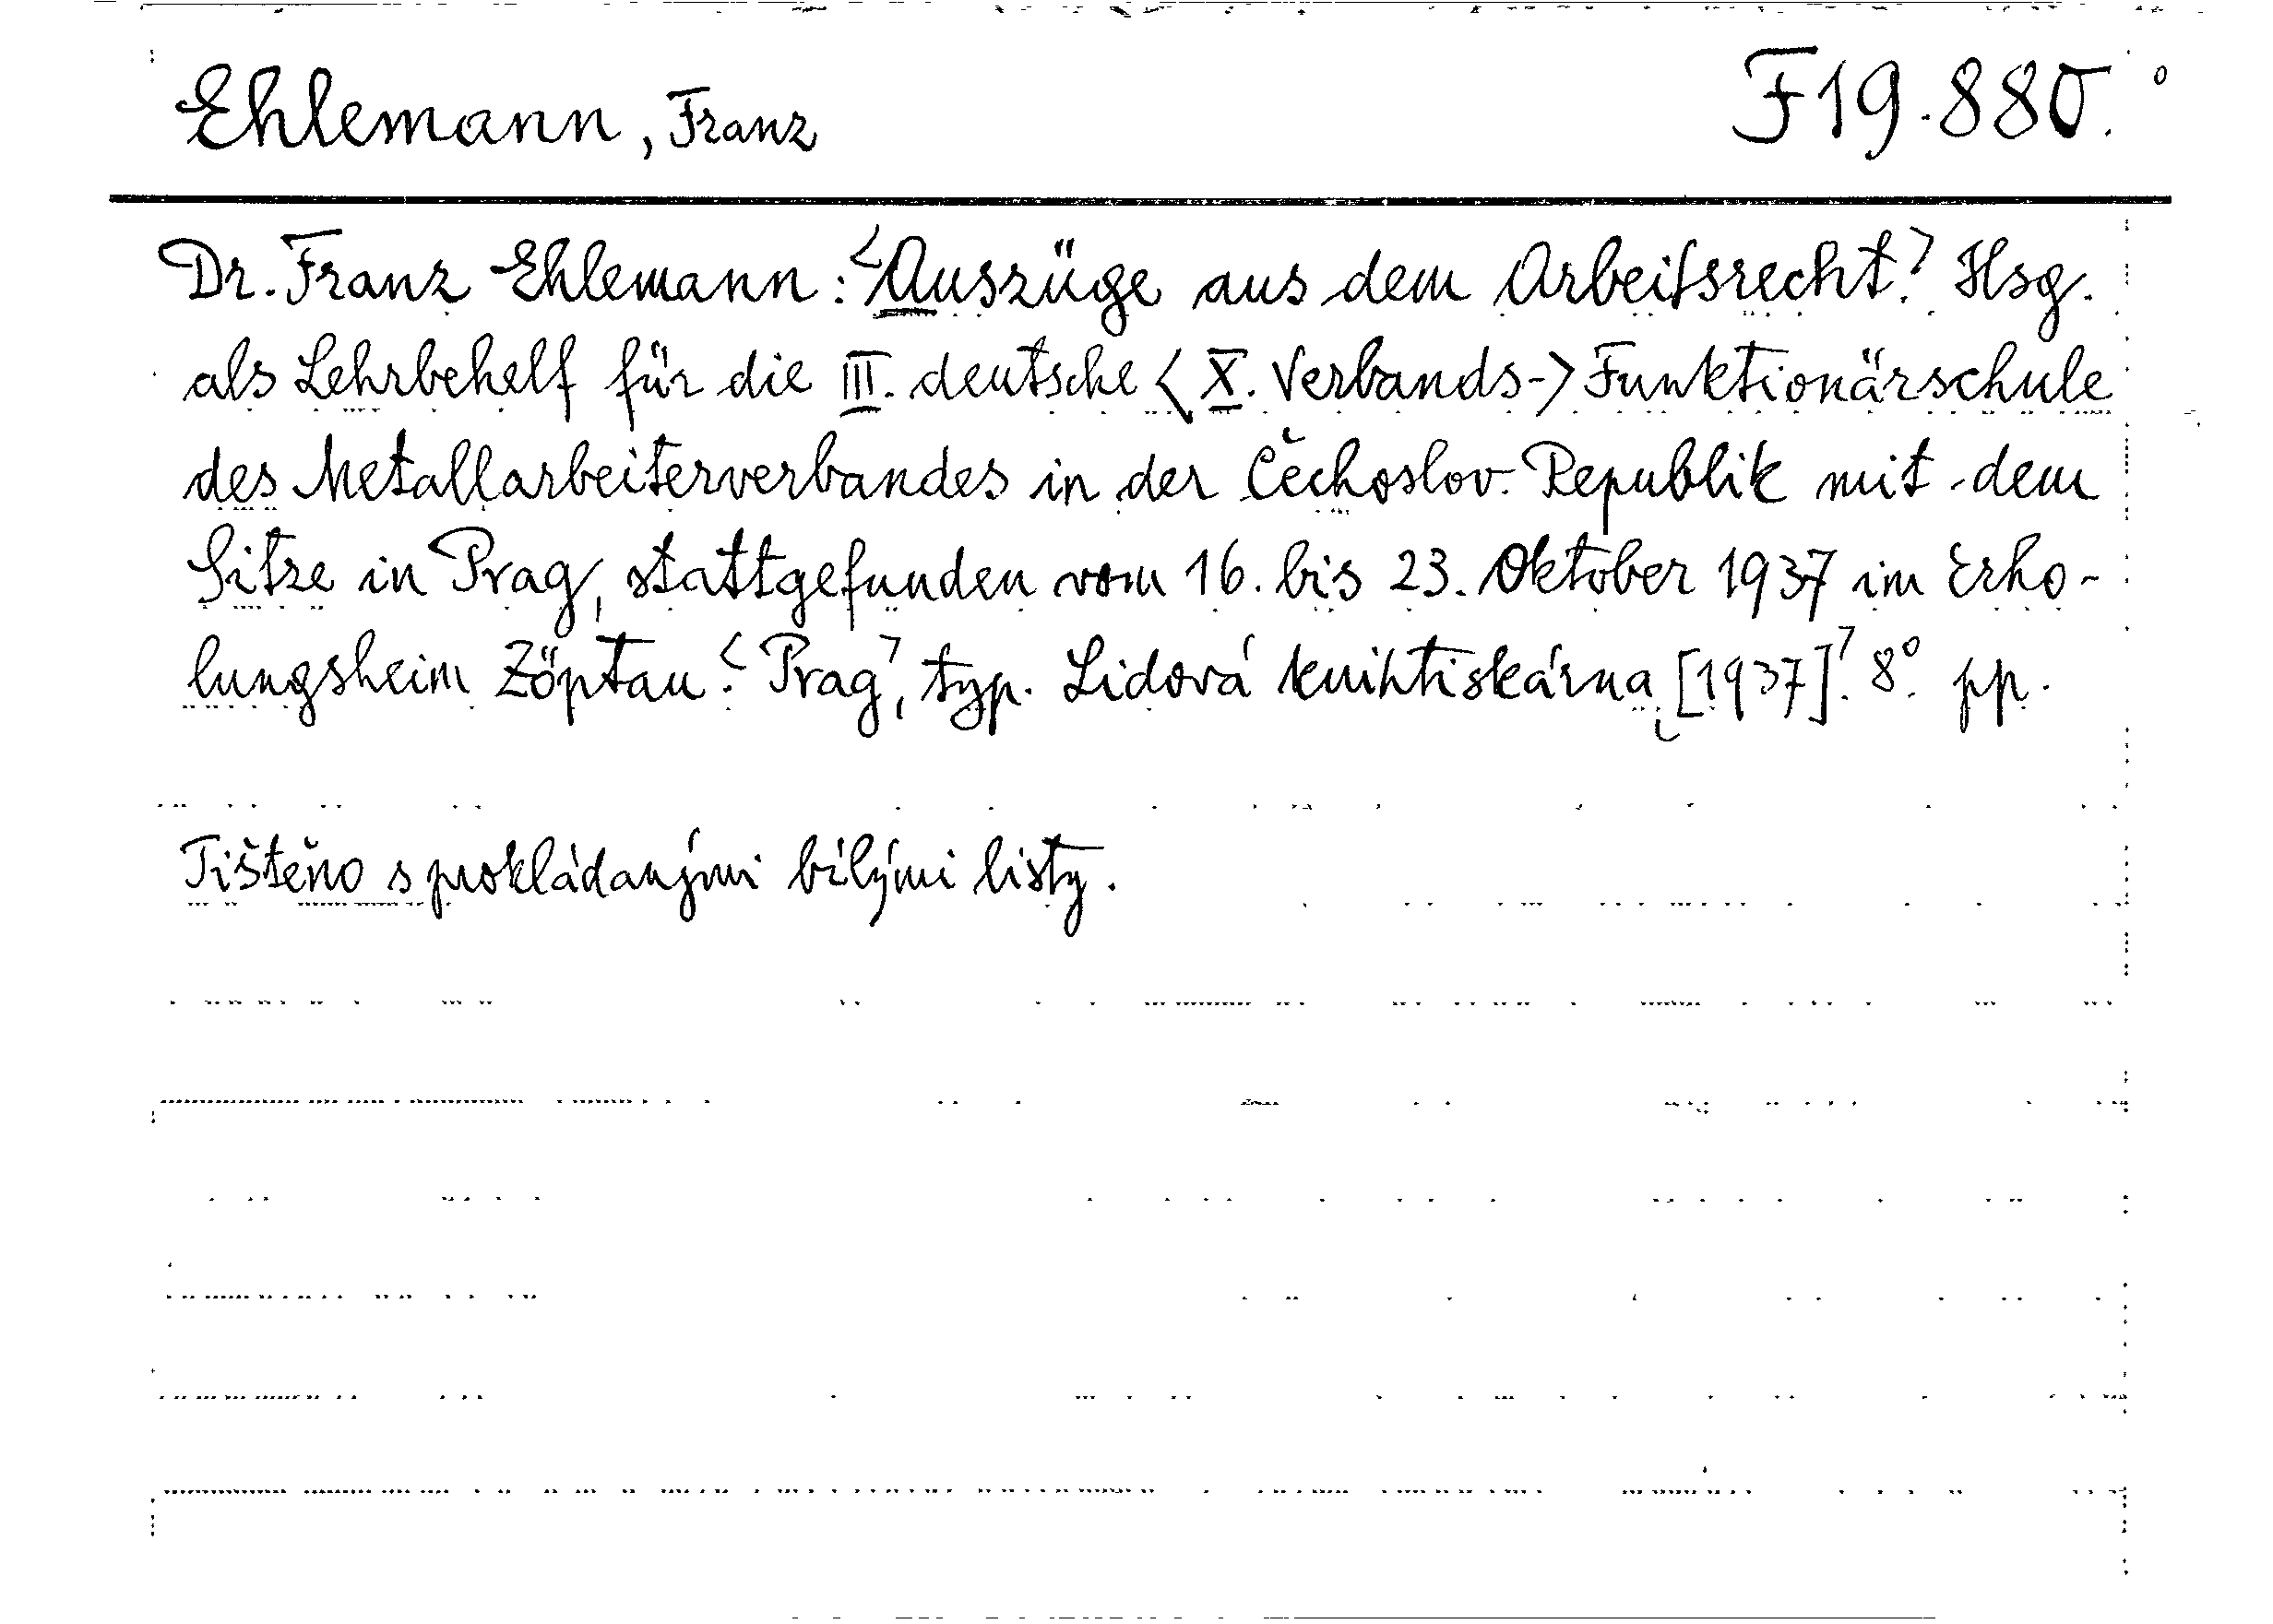 Ehlemann, Franz
F19.880.°
Dr. Franz Ehlemann: <Auszüge aus dem Arbeitsrecht.> Hsg.
als Lehrbehelf für die III. deutsche <X. Verbands-> Funktionärschule
des Metallarbeiterverbandes in der Čechoslov. Republik mit dem
Sitze in Prag, stattgefunden vom 16. bis 23. Oktober 1937 im Erho-
lungsheim Zöptau. <Prag>, typ. Lidová knihtiskárna [1937].> 8°. pp.
Tištěno s prokládanými bílými listy.